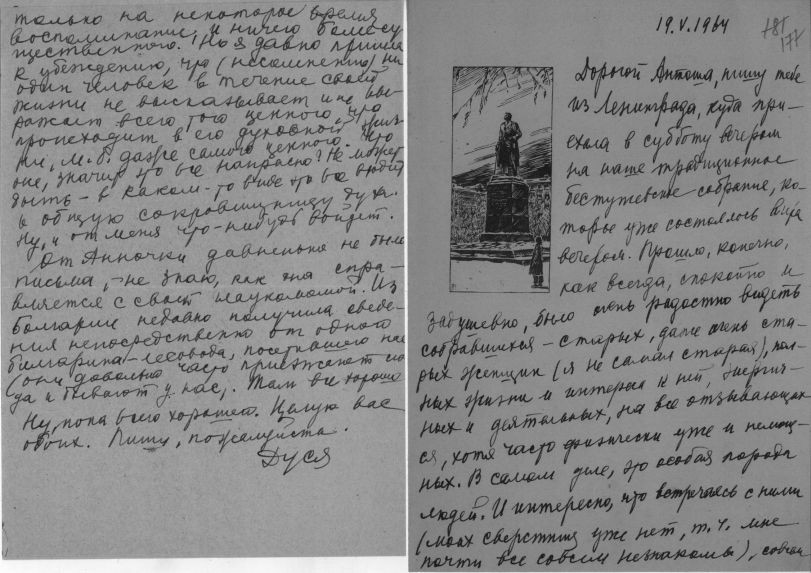 только на некоторое время
воспоминание, и ничего более су-
щественного. Но я давно пришла
к убеждению, что (несомненно) ни
один человек в течение своей
жизни не высказывает и не вы-
ражает всего того ценного, что
происходит в его духовной жиз-
ни, м.б. даже самого ценного. Что
оне, значит это все напрасно? Не может
быть – в каком-то виде это все входит
в общую сокровищницу духа.
Ну, и от меня что-нибудь войдет.
От Анночки давненько не было
письма, – не знаю, как она спра-
вляется с своей
Болгарии недавно получила сведе-
ния непосредственно от одного
болгарина-лесовода, посетившего нас
(они довольно часто приезжают сю-
да и бывают у нас). Там все хорошо
Ну, пока всего хорошего. Целую вас
обоих. Пиши, пожалуйста.
Дуся
19.V.1964
181
177
Дорогой Антоша, пишу тебе
из Ленинграда, куда при-
ехала в субботу вечером
на наше традиционное
бестужевское собрание, ко-
торое уже состоялось вчера
вечером. Прошло, конечно,
как всегда, спокойно и
задушевно, было очень радостно видеть
собравшихся – старых, даже очень ста-
рых женщин (я не самая старая), пол-
ных жизни и интереса к ней, энергич-
ных и деятельных, на все отзывающих
ся, хотя часто физически уже и немощ-
ных. В самом деле, это особая порода
людей. И интересно, что встречаясь с ними
(моих сверстниц уже нет, т.ч. мне
почти все совсем незнакомы), совсем